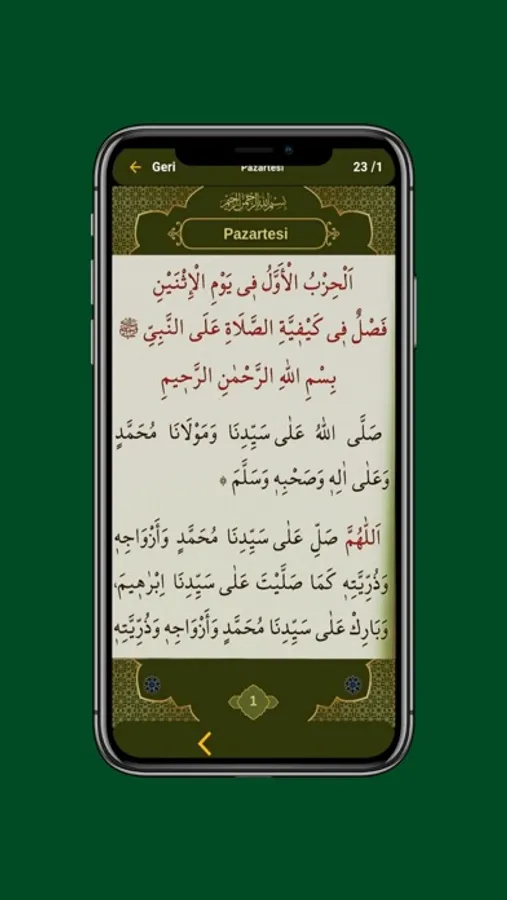 Geri
Pazartesi
23 /1
بسم الله الرحمن الرحيم
Pazartesi
اَلْحِزْبُ الْأَوَّلُ فِى يَوْمِ الْإِثْنَيْنِ
فَصْلٌ فِى كَيْفِيَّةِ الصَّلَاةِ عَلَى النَّبِيِّ ﷺ
بِسْمِ اللهِ الرَّحْمٰنِ الرَّحِيمِ
صَلَّى اللهُ عَلٰى سَيِّدِنَا وَمَوْلَانَا مُحَمَّدٍ
وَعَلٰى اٰلِهٖ وَصَحْبِهٖ وَسَلَّمَ
اَللّٰهُمَّ صَلِّ عَلٰى سَيِّدِنَا مُحَمَّدٍ وَأَزْوَاجِهٖ
وَذُرِّيَّتِهٖ كَمَا صَلَّيْتَ عَلٰى سَيِّدِنَا اِبْرٰهِيمَ،
وَبَارِكْ عَلٰى سَيِّدِنَا مُحَمَّدٍ وَأَزْوَاجِهٖ وَذُرِّيَّتِهٖ
1